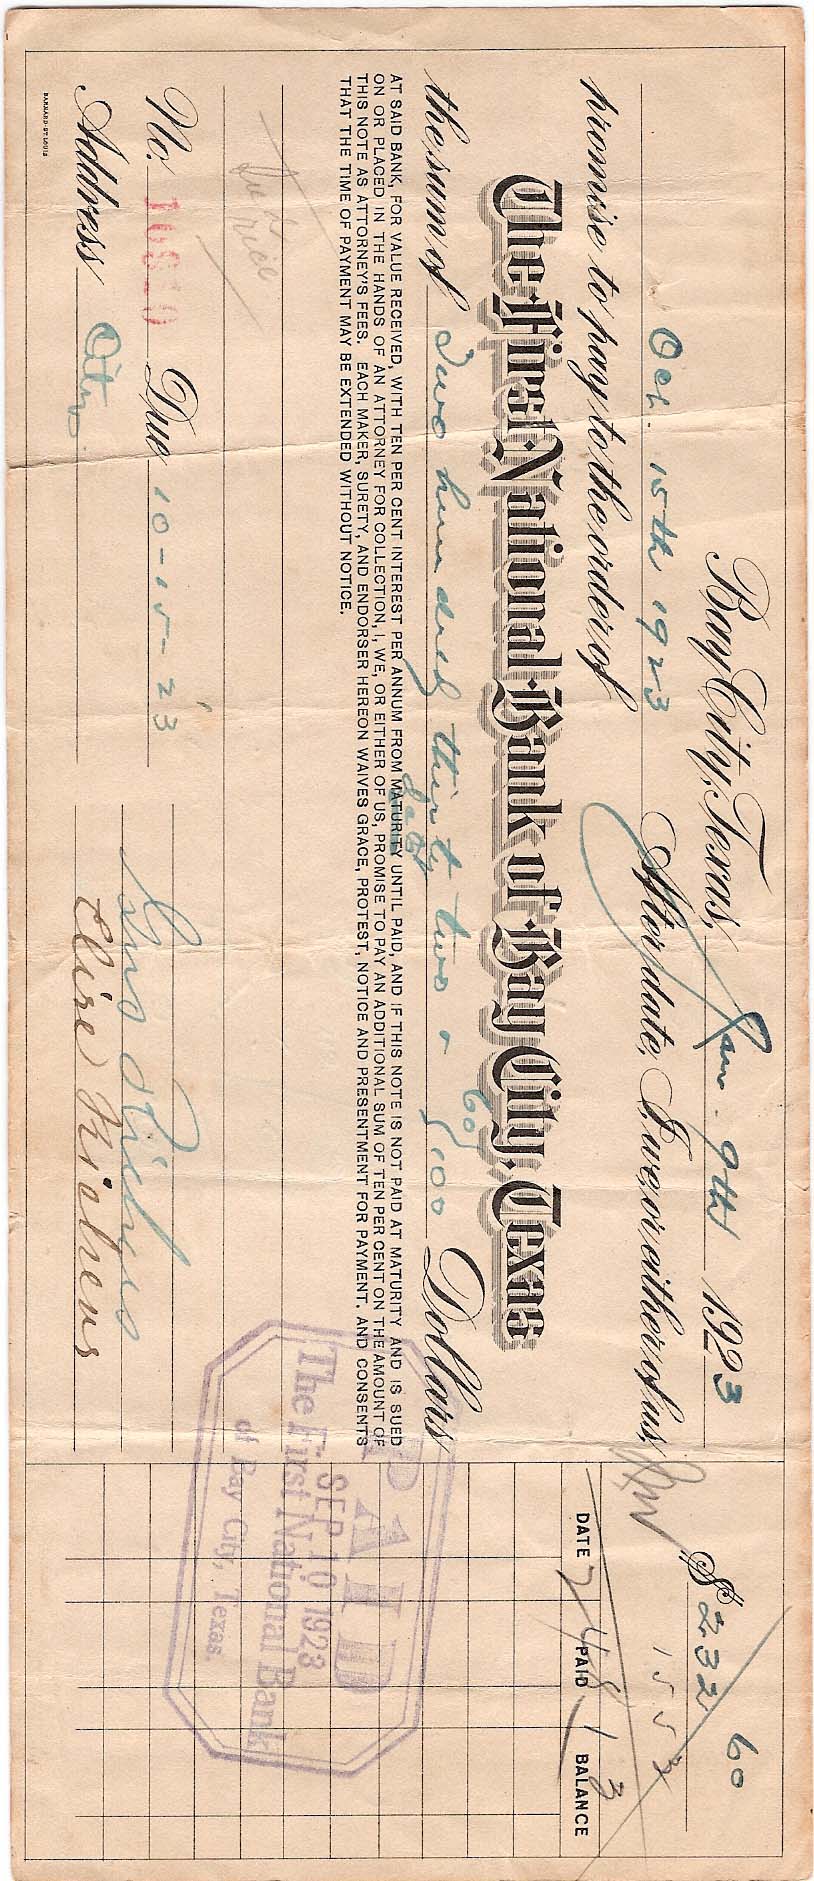 Bay City, Texas, Jan. 9th 1923 $ 232 60
Oct. 15th 1923 After date, I, we, or either of us, 15 53
promise to pay to the order of
DATE PAID BALANCE
248 13
The First National Bank of Bay City, Texas
the sum of Two hundred thirty two & 60/100 Dollars
date
AT SAID BANK, FOR VALUE RECEIVED, WITH TEN PER CENT INTEREST PER ANNUM FROM MATURITY UNTIL PAID, AND IF THIS NOTE IS NOT PAID AT MATURITY AND IS SUED
ON OR PLACED IN THE HANDS OF AN ATTORNEY FOR COLLECTION, I, WE, OR EITHER OF US, PROMISE TO PAY AN ADDITIONAL SUM OF TEN PER CENT ON THE AMOUNT OF
THIS NOTE AS ATTORNEY'S FEES. EACH MAKER, SURETY, AND ENDORSER HEREON WAIVES GRACE, PROTEST, NOTICE AND PRESENTMENT FOR PAYMENT, AND CONSENTS
THAT THE TIME OF PAYMENT MAY BE EXTENDED WITHOUT NOTICE.
PAID
SEP 10 1923
The First National Bank
of Bay City, Texas.
No. Due 10-15-23
Address City
Elise
BARNARD-ST. LOUIS